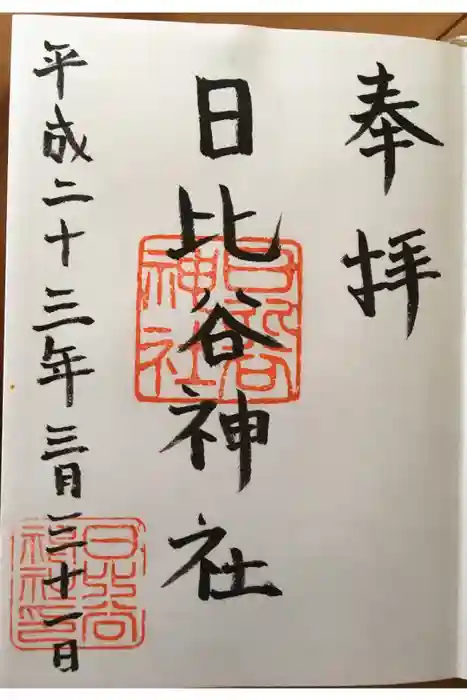 奉拝
日比谷神社
平成二十三年三月三十一日
日比谷神社
日比谷神社印